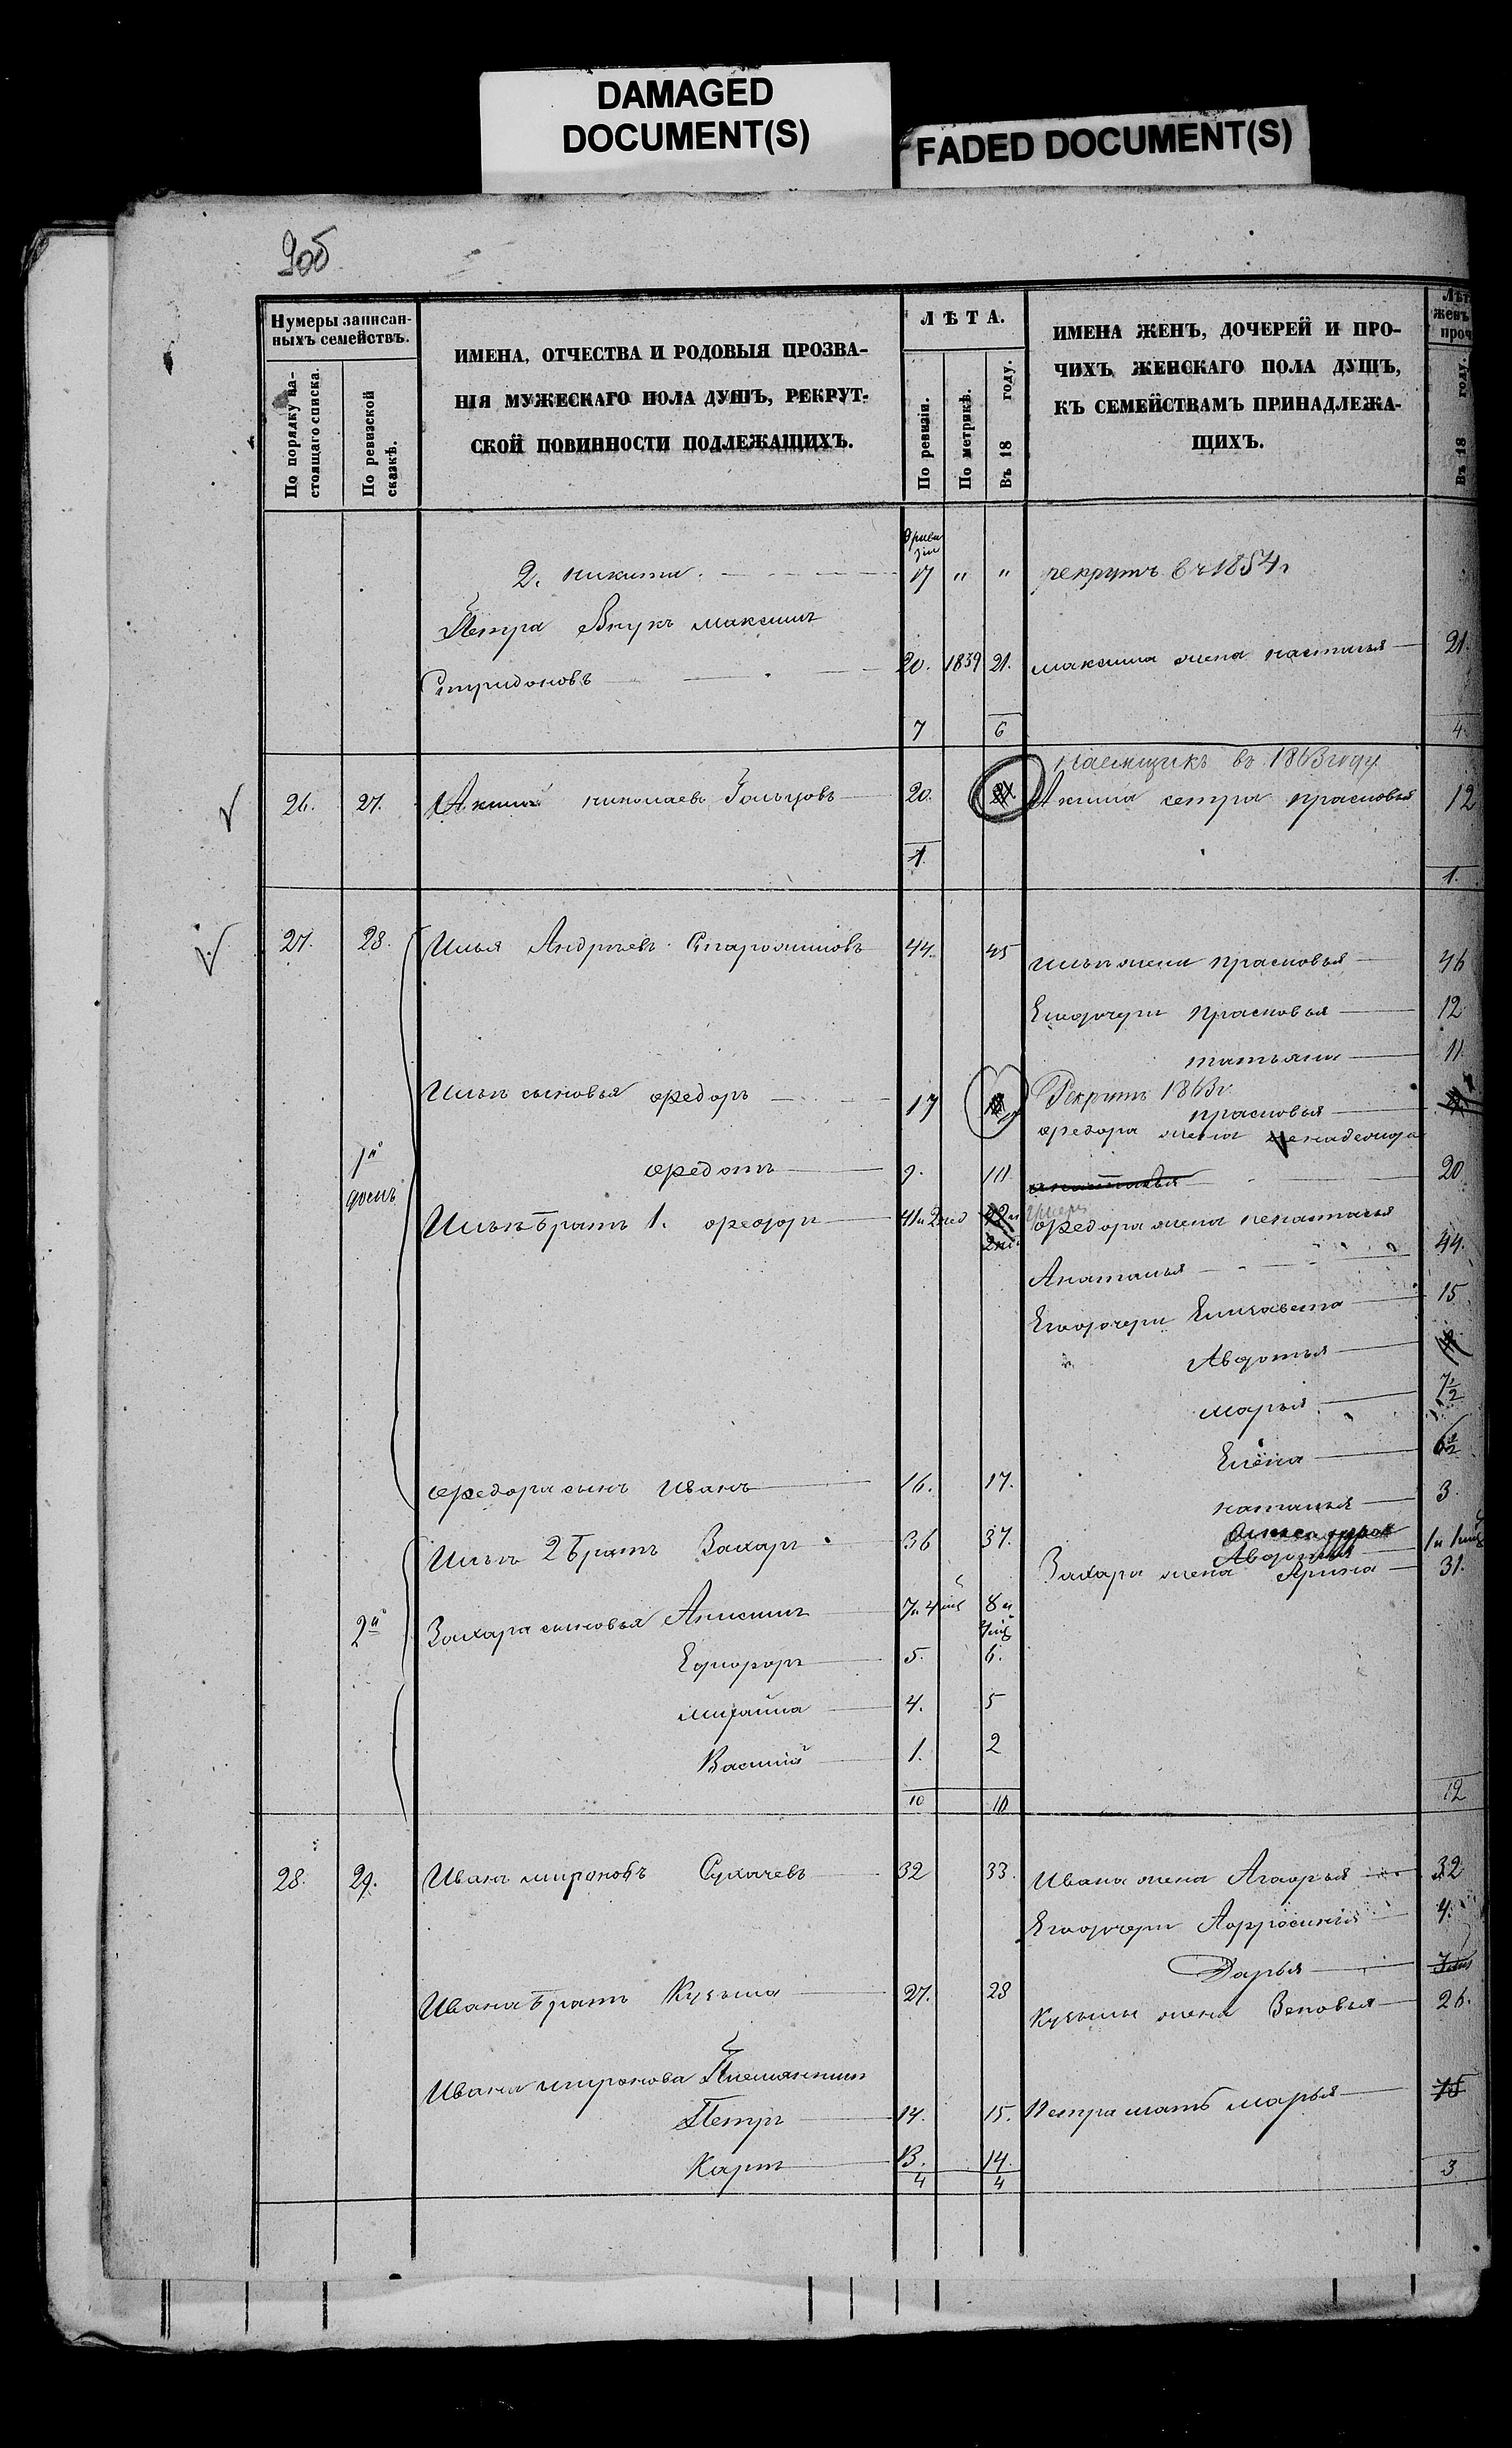 DAMAGED
DOCUMENT(S)
FADED DOCUMENT(S)
9об
Нумеры записан-
ныхъ семействъ.
По порядку на-
стоящаго списка.
По ревизской
сказкѣ.
ИМЕНА, ОТЧЕСТВА И РОДОВЫЯ ПРОЗВА-
НІЯ МУЖЕСКАГО ПОЛА ДУШЪ, РЕКРУТ-
СКОЙ ПОВИННОСТИ ПОДЛЕЖАЩИХЪ.
ЛѢТА.
По ревизіи.
По метрикѣ.
Въ 18 году.
ИМЕНА ЖЕНЪ, ДОЧЕРЕЙ И ПРО-
ЧИХЪ ЖЕНСКАГО ПОЛА ДУШЪ,
КЪ СЕМЕЙСТВАМЪ ПРИНАДЛЕЖА-
ЩИХЪ.
Лѣт
женъ
проч
Въ 18 году.
2. никита 17 " " рекрутъ въ 1854г
Петра Внукъ максимъ
Спиридоновъ 20. 1839 21. максима жена настасья 21.
7 6 4.
наемщикъ въ 1863 году
26. 27. Акимъ николаевъ Гольцовъ 20. Акима сестра прасковья 12
1. 1.
27. 28. Илья Андреевъ 44. 45 Ильи жена прасковья 46
Егодочери прасковья 12
татьяна 11
Рекрутъ 1863г
Ильи сыновья Федоръ 17 прасковья
Федора жена
1й домъ
Федотъ 9. 10 20
Ильи братъ 1. Федоръ 41и2нед Федора жена
Анатолья 44.
Егодочери Елисавета 15
Авдотья
марья 7½
Елена 6½
Федора сынъ Иванъ 16. 17. наталья 3.
Ильи 2 братъ Захаръ 36 37. Авдотья
Захара жена Арина 31.
2й Захара сыновья Анисимъ 7и4мѣ 8и4мѣ
Едифоръ 5. 6.
михайла 4. 5
Василій 1. 2
10 10 12
28. 29. Иванъ мироновъ Сухачевъ 32 33. Ивана жена Агафья 32
Егодочери Афросинія 4.
Дарья
Ивана братъ Кузьма 27. 28 Кузьмы жена Зеновья 26.
Ивана миронова Племянники
Петръ 14. 15. Петра мать марья 75
Карпъ 13. 14.
4 4 3